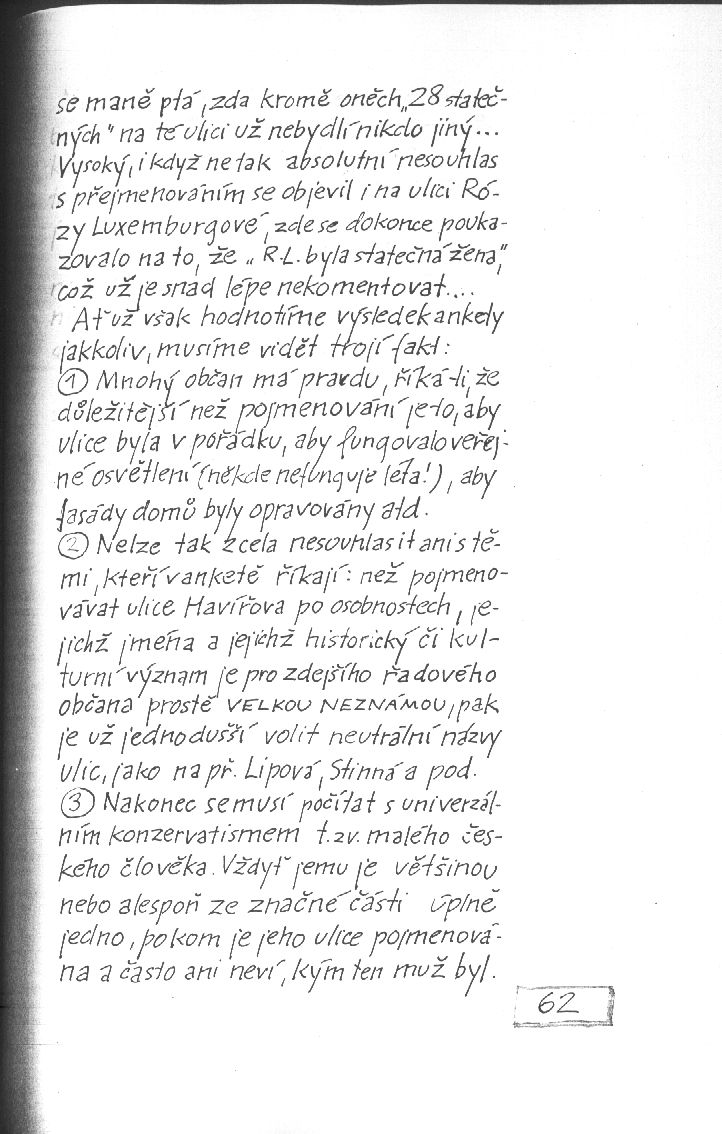 se maně ptá, zda kromě oněch „28 stateč-
ných" na té ulici už nebydlí nikdo jiný...
Vysoký, i když ne tak absolutní nesouhlas
s přejmenováním se objevil i na ulici Ró-
zy Luxemburgové, zde se dokonce pouka-
zovalo na to, že „R.L. byla statečná žena,"
což už je snad lépe nekomentovat....
Ať už však hodnotíme výsledek ankety
jakkoliv, musíme vidět trojí fakt:
① Mnohý občan má pravdu, říká-li, že
důležitější než pojmenování je to, aby
ulice byla v pořádku, aby fungovalo veřej-
né osvětlení (někde nefunguje léta!), aby
fasády domů byly opravovány atd.
② Nelze tak zcela nesouhlasit ani s tě-
mi, kteří v anketě říkají: než pojmeno-
vávat ulice Havířova po osobnostech, je-
jichž jména a jejichž historický či kul-
turní význam je pro zdejšího řadového
občana prostě VELKOU NEZNÁMOU, pak
je už jednodušší volit neutrální názvy
ulic, jako např. Lipová, Stinná a pod.
③ Nakonec se musí počítat s univerzál-
ním konzervatismem t.zv. malého čes-
kého člověka. Vždyť jemu je většinou
nebo alespoň ze značné části úplně
jedno, po kom je jeho ulice pojmenová-
na a často ani neví, kým ten muž byl.
62